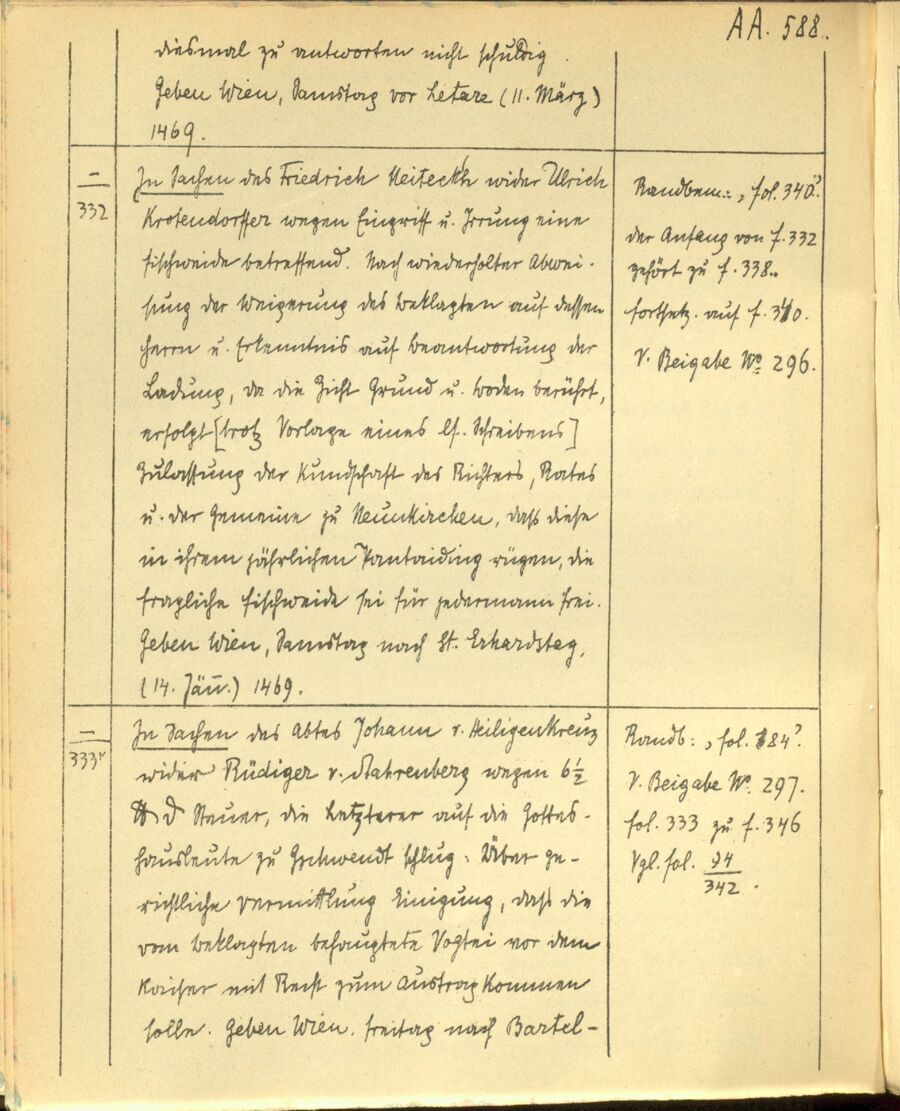 AA. 588.
diesmal zu antworten nicht schuldig.
Geben Wien, Samstag vor Letare (11. März)
1469.
—
332
In Sachen des Friedrich Neiteckh wider Ulrich
Krotendorffer wegen Eingriff u. Irrung eine
Fischweide betreffend. Nach wiederholter Abwei-
sung der Weigerung des Beklagten auf dessen
Herrn u. Erkenntnis auf Beantwortung der
Ladung, da die Zicht Grund u. Boden berührt,
erfolgt [trotz Vorlage eines lf. Schreibens]
Zulassung der Kundschaft des Richters, Rates
u. der Gemeine zu Neunkirchen, dass diese
in ihrem jährlichen Pantaiding rügen, die
fragliche Fischweide sei für jedermann frei.
Geben Wien, Samstag nach St. Erhardstag,
(14. Jän̄.) 1469.
Randbem.: „fol. 340".
der Anfang von f. 332
gehört zu f. 338.
Fortsetz. auf f. 340.
V. Beigabe No. 296.
—
333r
In Sachen des Abtes Johann v. Heiligenkreuz
wider Rüdiger v. Stahrenberg wegen 6½
℔ d Steuer, die Letzterer auf die Gottes-
hausleute zu Gschwendt schlug: Über ge-
richtliche Vermittlung Einigung, dass die
vom Beklagten behauptete Vogtei vor dem
Kaiser mit Recht zum Austrag kommen
solle. Geben Wien, Freitag nach Bartel-
Randb: „fol. 184".
V. Beigabe No. 297.
fol. 333 zu f. 346
Vgl. fol. 94
342.